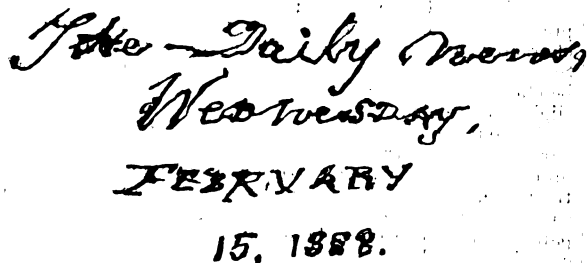 The Daily News,
Wednesday,
FEBRUARY
15, 1888.